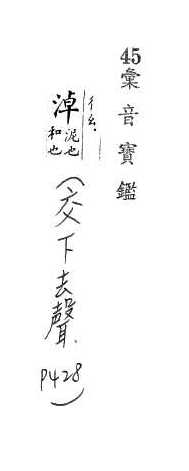 45彙音寶鑑
ㄔㄠˋ
淖泥也
和也
(交下去聲. P428)